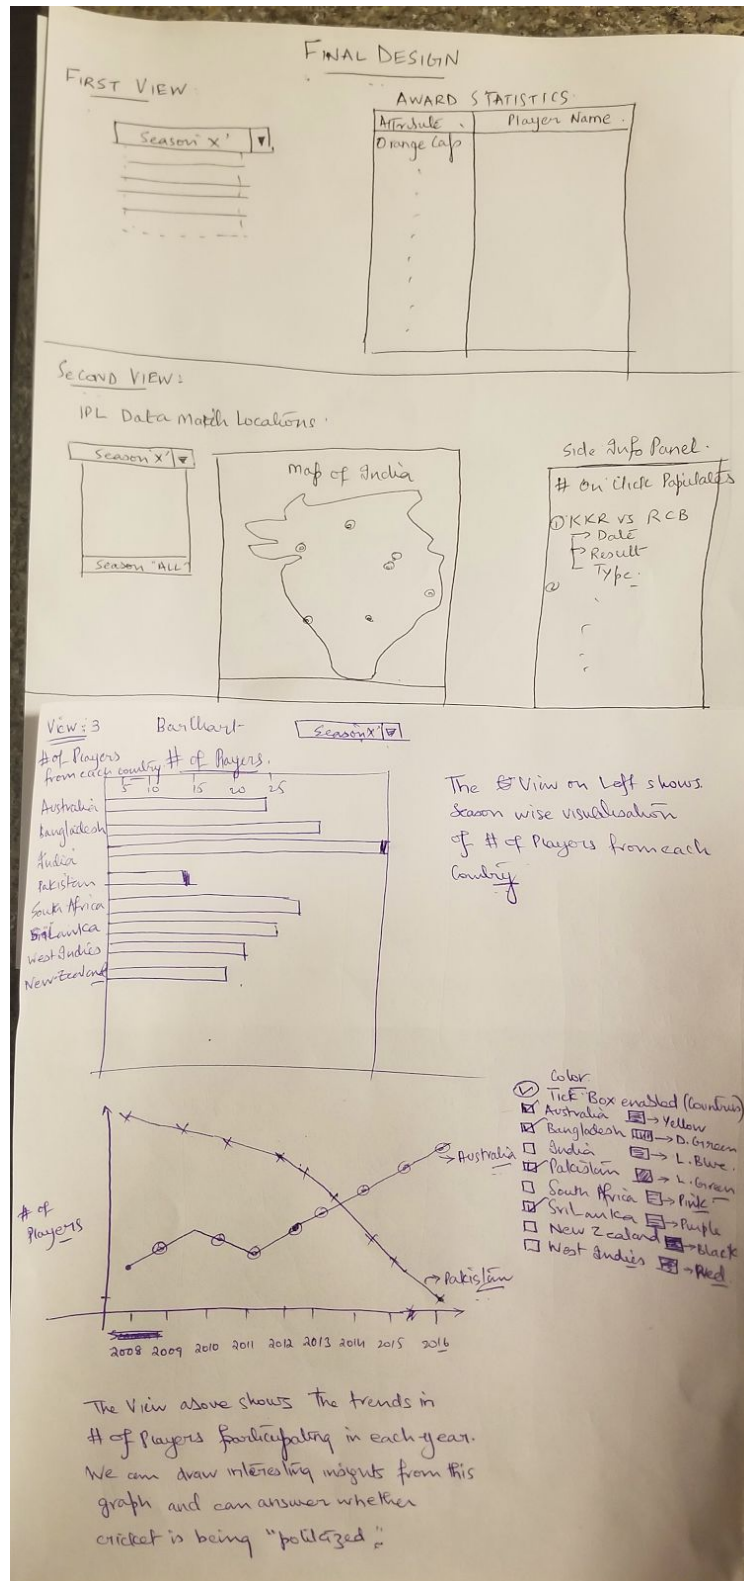 FINAL DESIGN
FIRST VIEW
Season 'X'
AWARD STATISTICS
Attribute Player Name
Orange Cap
SECOND VIEW:
IPL Data Match Locations.
Season 'X'
Season "ALL"
Map of India
Side Info Panel.
# On Click Populates
① KKR vs RCB
Date
Result
Type.
②
View: 3 Bar Chart
Season 'X'
# of Players
from each country
# of Players.
5 10 15 20 25
Australia
Bangladesh
India
Pakistan
South Africa
Sri Lanka
West Indies
New-Zealand
The View on Left shows
Season wise visualisation
of # of Players from each
Country
Color
Tick Box enabled (Countries)
Australia → Yellow
Bangladesh → D. Green
India → L. Blue.
Pakistan → L. Green
South Africa → Pink
Sri Lanka → Purple
New Zealand → Black
West Indies → Red
# of
Players
Australia
Pakistan
2008 2009 2010 2011 2012 2013 2014 2015 2016
The View above shows the trends in
# of Players participating in each year.
We can draw interesting insights from this
graph and can answer whether
cricket is being "politized".